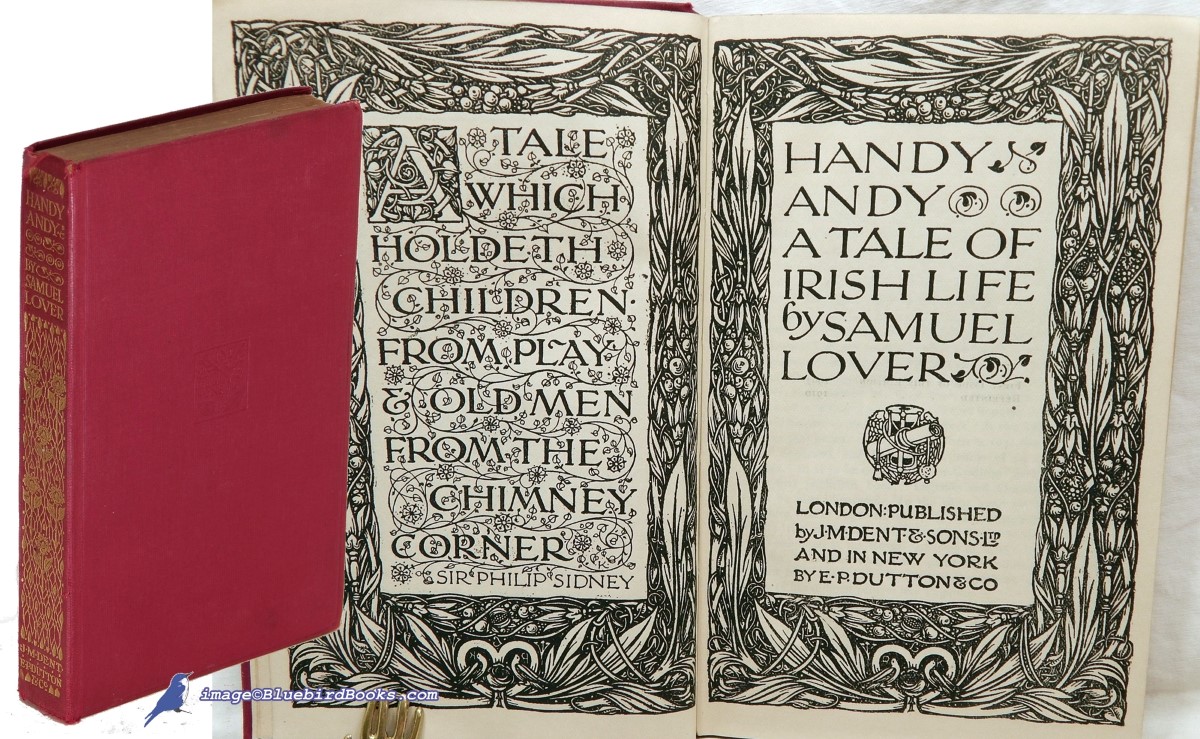 HANDY
ANDY
BY
SAMUEL
LOVER
J·M·DENT·
E·P·DUTTON
& Co
A TALE
WHICH
HOLDETH
CHILDREN·
FROM·PLAY·
& OLD MEN
FROM·THE
CHIMNEY
CORNER
SIR·PHILIP SIDNEY
HANDY
ANDY
A TALE OF
IRISH LIFE
by SAMUEL
LOVER
LONDON:PUBLISHED
by J·M·DENT·&·SONS·LTD
AND IN NEW YORK
BY E·P·DUTTON & CO
image©BluebirdBooks.com